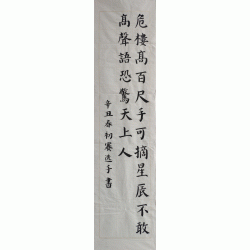 危樓高百尺手可摘星辰不敢
高聲語恐驚天上人
辛丑春初賽选手書